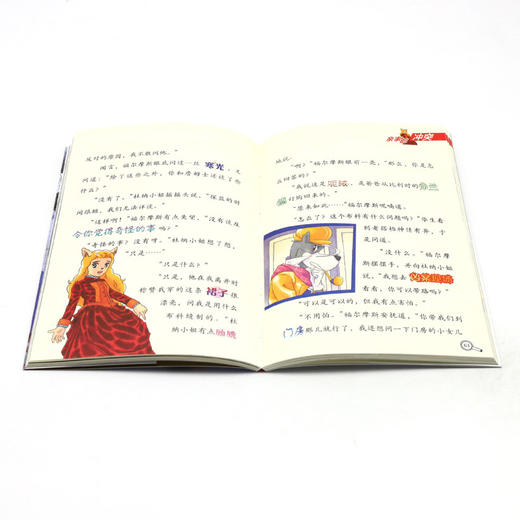 反对的原因，我不敢问他。"
闻言，福尔摩斯眼底闪过一丝寒光，又
问道："除了这些之外，你和詹姆士还谈了些
什么？"
"没有了。"杜纳小姐摇摇头说，"探监的时
间很短，我们无法详谈。"
"这样啊！"福尔摩斯有点失望，"没有谈及
令你觉得奇怪的事吗？"
"奇怪的事？没有呀。"杜纳小姐想了想，
"只是……"
"只是什么？"
"只是，他在我离开时
称赞我穿的这条裙子很
漂亮，问我是用什么
布料缝制的。"杜
纳小姐有点腼腆
冲突
地说。
"啊？"福尔摩斯眼前一亮，"那么，你是怎
么回答的？"
"我说这是
是爸爸从比利时的
订购回来的。"
"原来如此……"福尔摩斯呢喃道。
"怎么了？这个布料有什么问题吗？"华生看
到老搭档神情有异，于
是问道。
"没什么。"福尔摩
斯摆摆手，并向杜纳小姐
说，"我想去
看看，你可以带路吗？"
"可以是可以的，但我有点害怕。"
"不用怕。"福尔摩斯安抚道，"你带我们到
门房那儿就行了，我还想问一下门房的小女儿
61